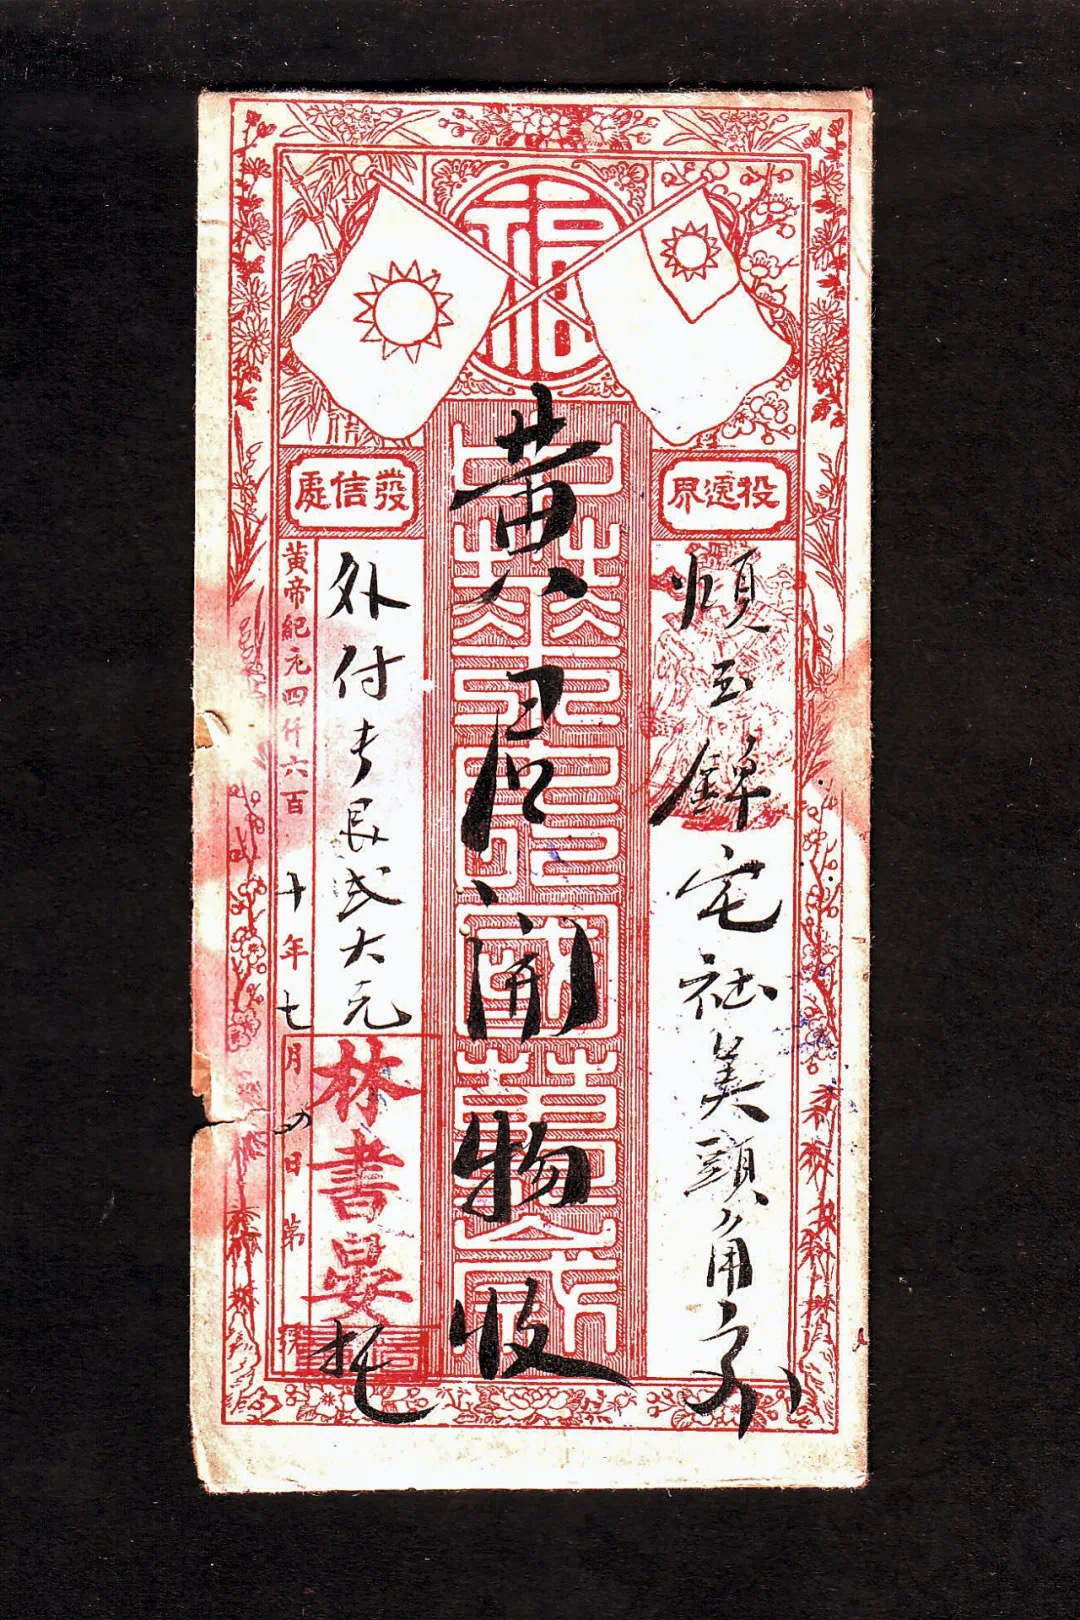 福
投遞界
發信處
煩至錦宅社美頭角交
中華民國萬歲
黃君開物收
外付去艮弍大元
林書晏托
黃帝紀元四仟六百十年七月四日第